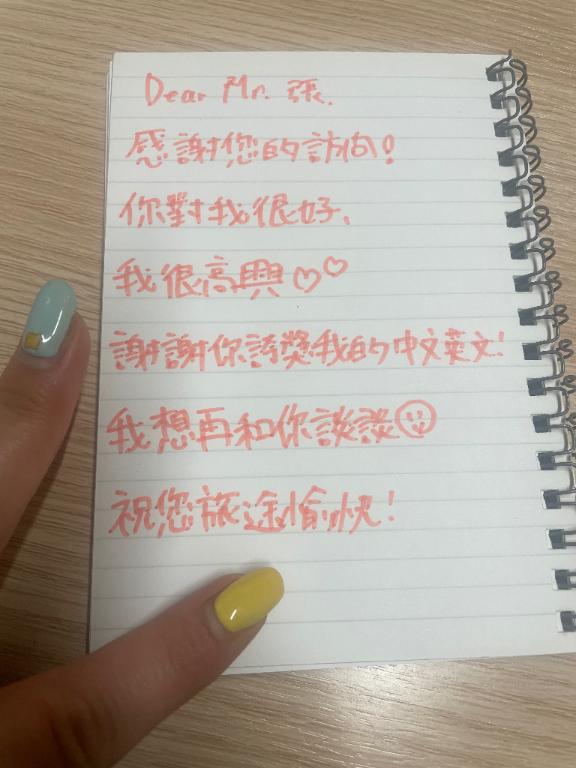 Dear Mr. 張.
感謝您的訪问!
你對我很好.
我很高興♡♡
謝謝你誇獎我的中文英文!
我想再和你談談☺
祝您旅途愉快!